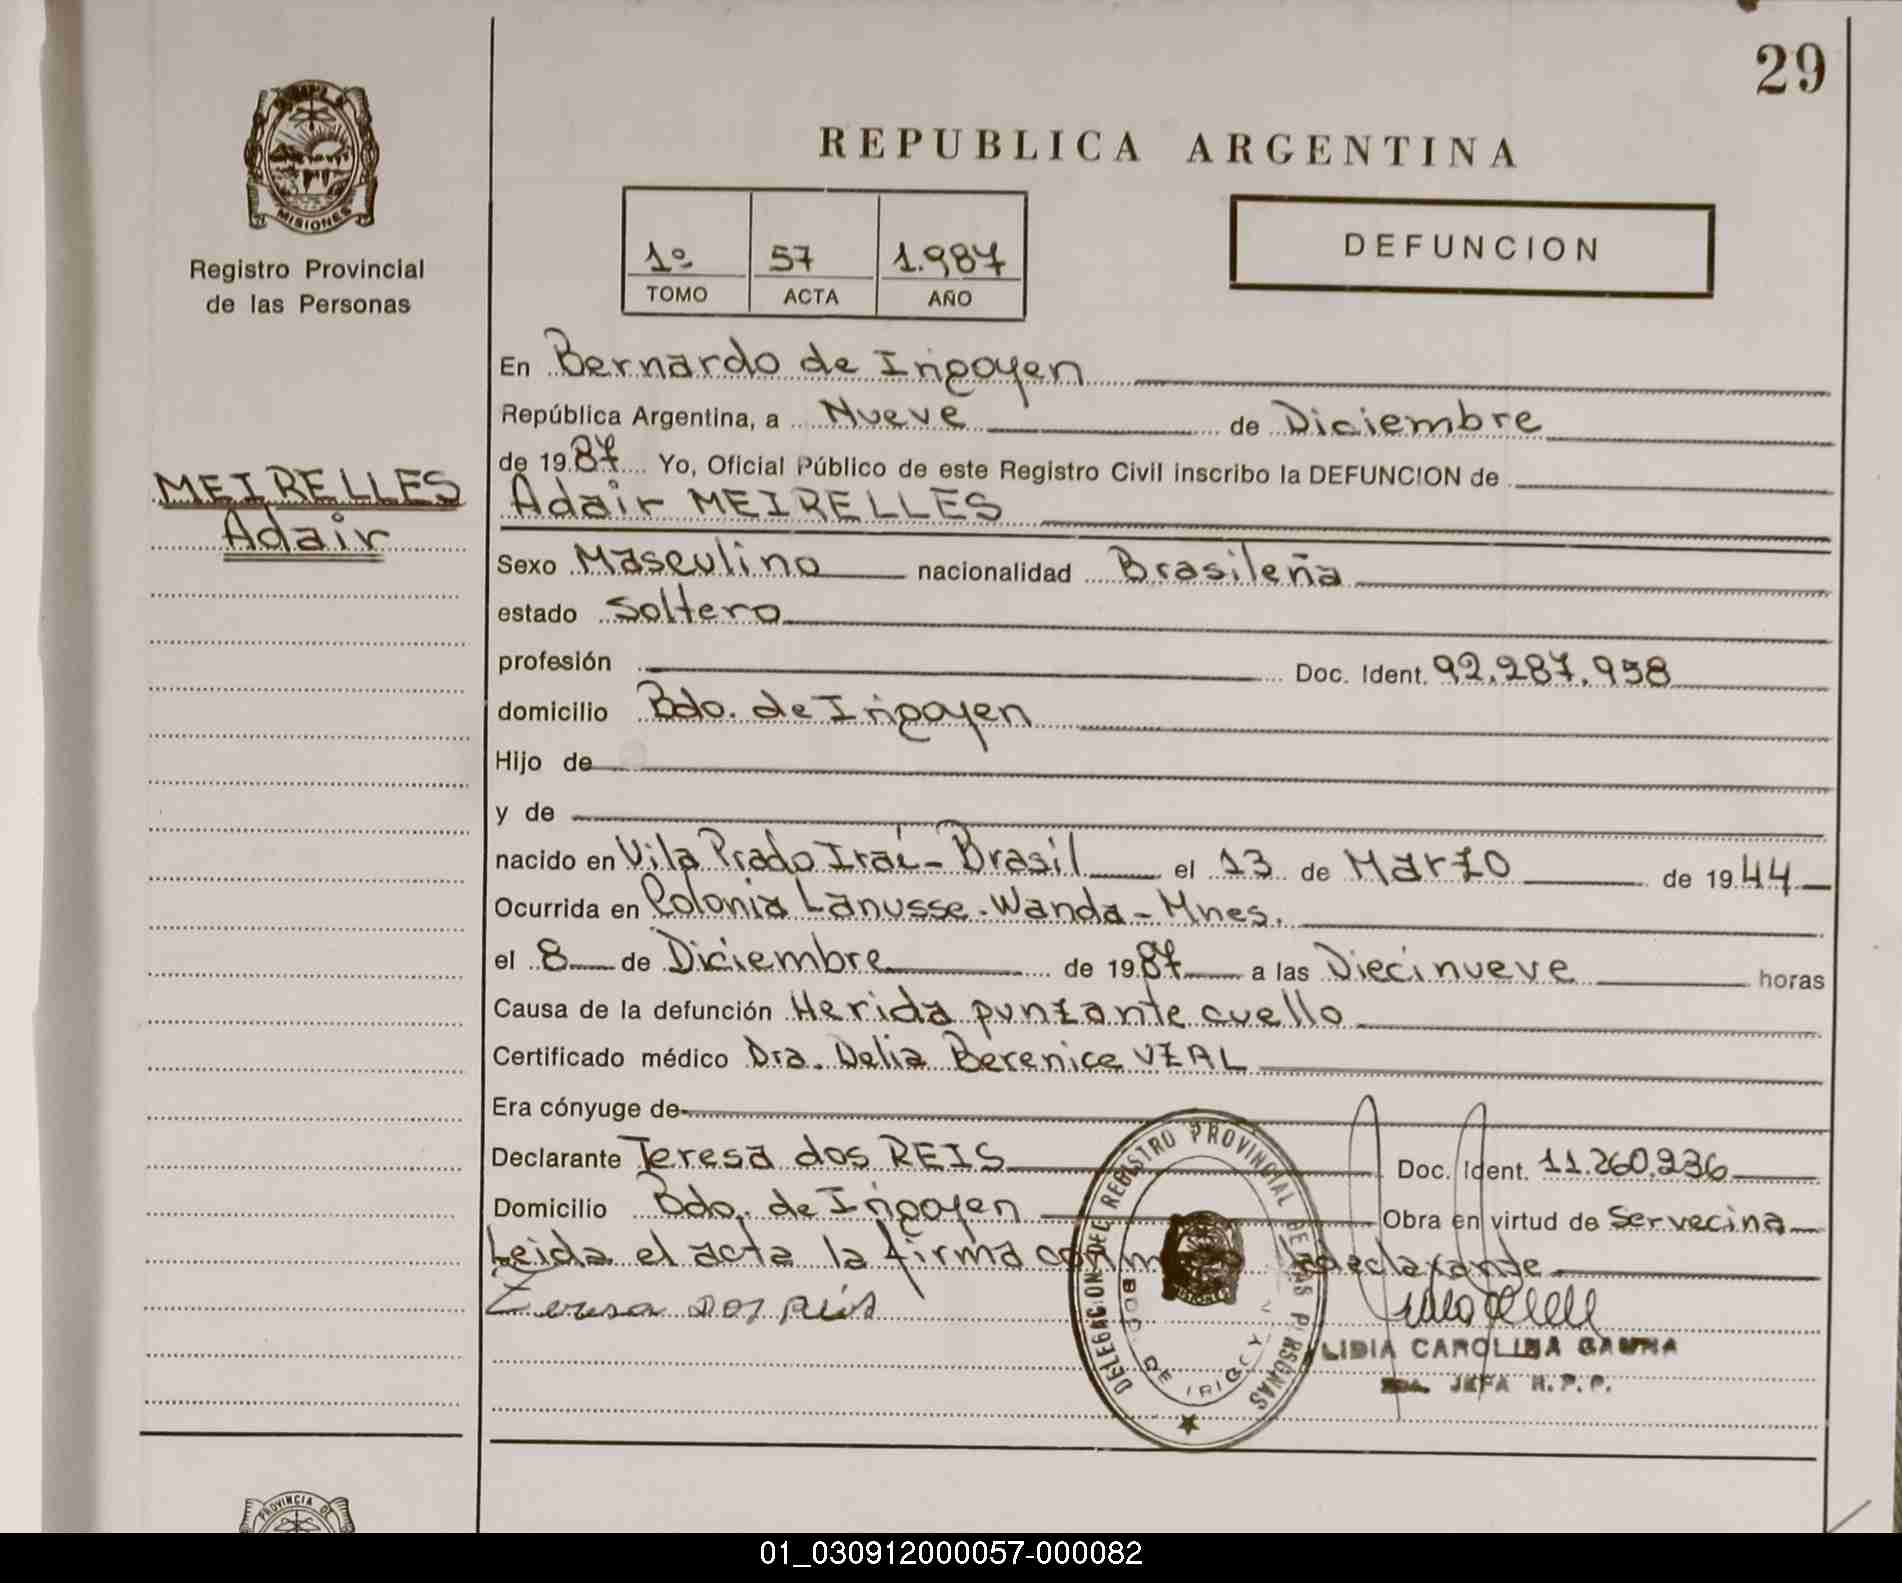 29
REPUBLICA ARGENTINA
MISIONES
Registro Provincial
de las Personas
1º 57 1.987
TOMO ACTA AÑO
DEFUNCION
En Bernardo de Irigoyen
República Argentina, a Nueve de Diciembre
de 1987 Yo, Oficial Público de este Registro Civil inscribo la DEFUNCION de
Adair MEIRELLES
MEIRELLES
Adair
Sexo Masculino nacionalidad Brasileña
estado Soltero
profesión Doc. Ident. 92.287.958
domicilio Bdo. de Irigoyen
Hijo de
y de
nacido en Vila Prado Iraí - Brasil el 13 de Marzo de 1944
Ocurrida en Colonia Lanusse - Wanda - Mnes.
el 8 de Diciembre de 1987 a las Diecinueve horas
Causa de la defunción Herida punzante cuello
Certificado médico Dra. Delia Berenice VZAL
Era cónyuge de
Declarante Teresa dos REIS Doc. Ident. 11.260.936
Domicilio Bdo. de Irigoyen Obra en virtud de Servecina
Leida el acta la firma conmigo la declarante
Teresa Dos Reis
DELEGACION DEL REGISTRO PROVINCIAL DE LAS PERSONAS
BDO. DE IRIGOYEN
LIDIA CAROLINA
JEFA R.P.P.
PROVINCIA DE
01_030912000057-000082